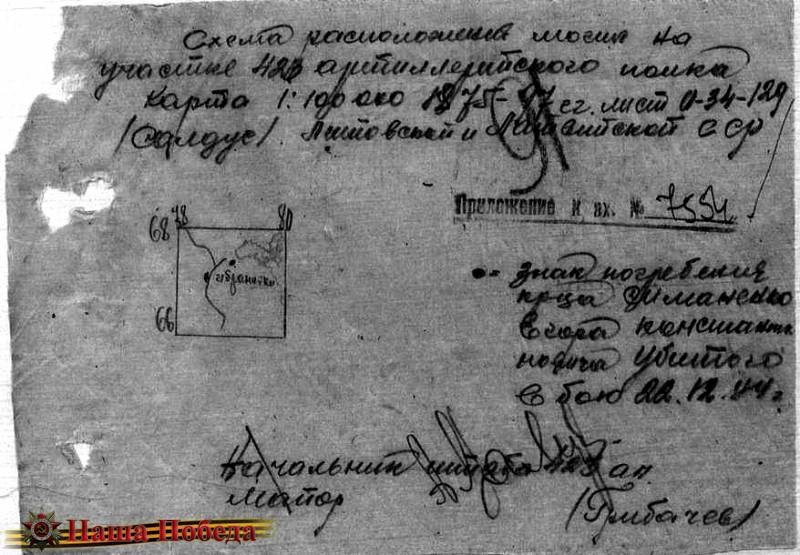 Схема расположения могил на
участке 423 артиллерийского полка
Карта 1:100 000 1875-97 сг. лист О-34-129
/Салдус/. Литовской и Латвийской ССР
Приложение к вх. № 7554
68 78 80
66
•- знак погребения
Егора Константи-
новича убитого
в бою 22.12.44 г.
Начальник штаба 423 ап
Майор
(Грибачев)
Наша Победа